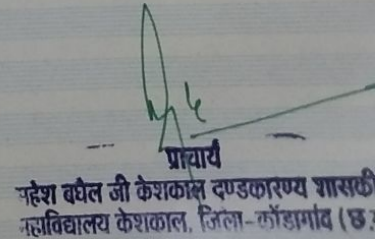 प्राचार्य
महेश बघेल जी केशकाल दण्डकारण्य शासकी
महाविद्यालय केशकाल, जिला-कोंडागांव (छ.